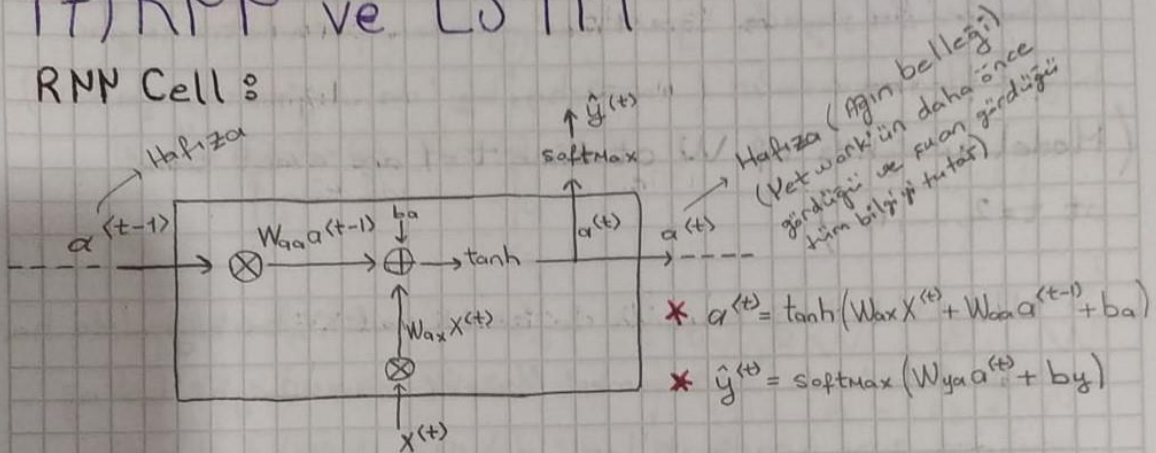 ve
RNN Cell:
Hafıza
a^(t-1)
W_aa a^(t-1)
ba
tanh
a^(t)
softMax
ŷ^(t)
W_ax X^(t)
X^(t)
a^(t)
Hafıza (Ağın belleği)
(Network'ün daha önce
gördüğü ve şuan gördüğü
tüm bilgiyi tutar)
* a^(t) = tanh(W_ax X^(t) + W_aa a^(t-1) + ba)
* ŷ^(t) = softMax(W_ya a^(t) + by)